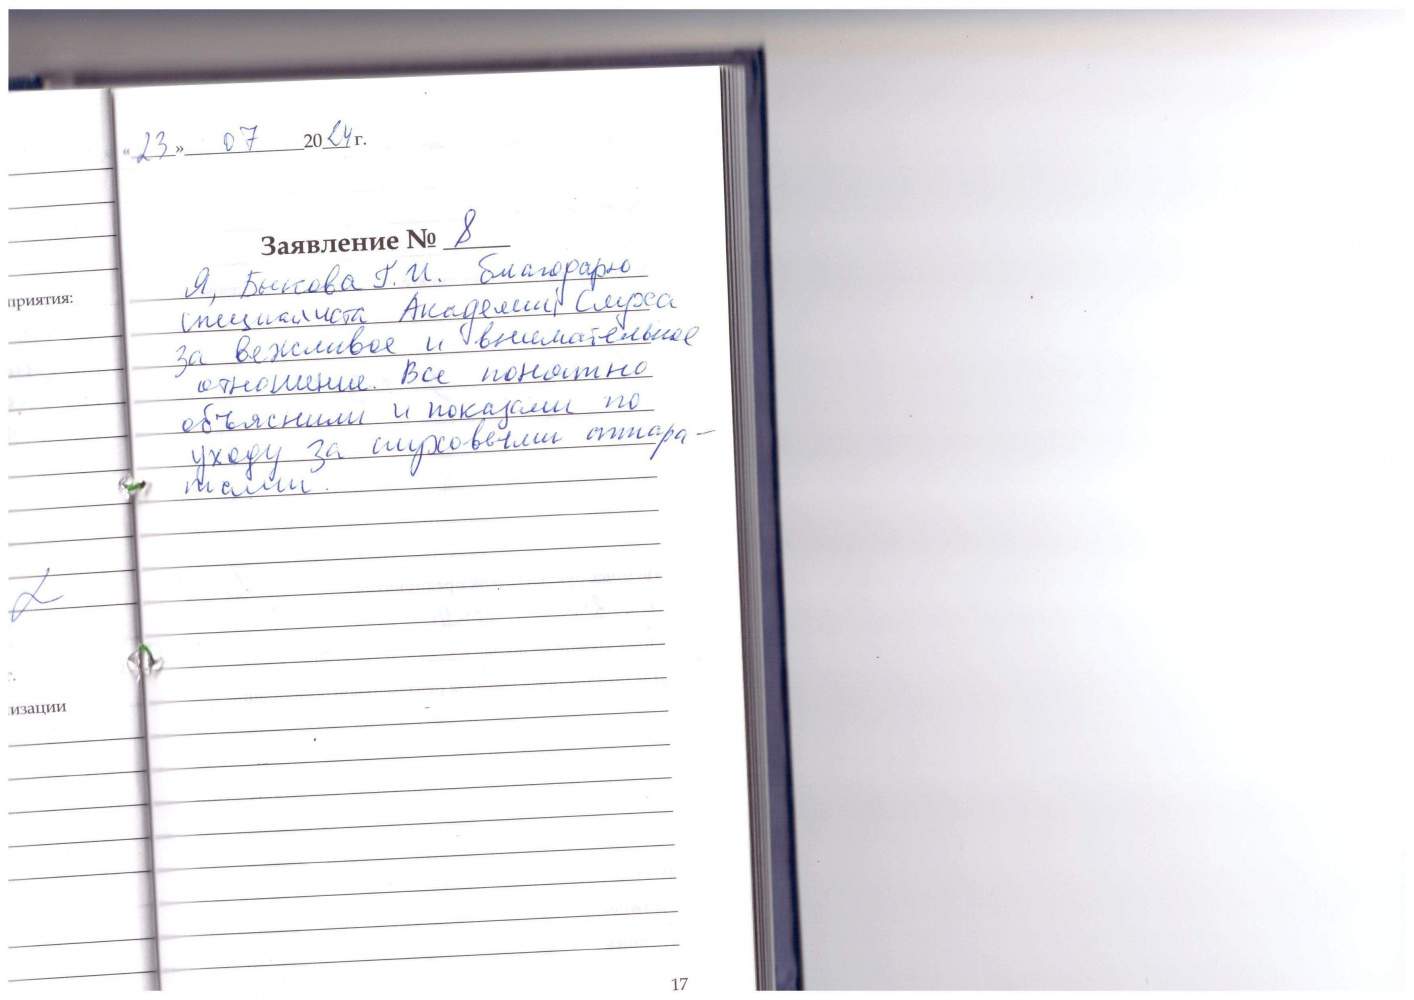 приятия:
г.
изации
«23» 07 2024 г.
Заявление № 8
Я, Быкова Г.И. благодарю
специалиста Академии Слуха
за вежливое и внимательное
отношение. Все понятно
объяснили и показали по
уходу за слуховыми аппара-
тами.
17